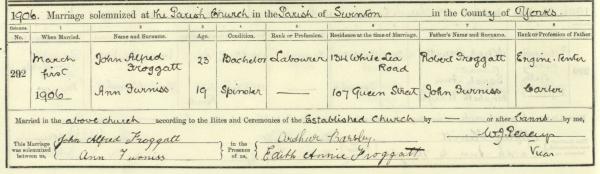 1906. Marriage solemnized at the Parish Church in the Parish of Swinton in the County of Yorks
Columns. 1 2 3 4 5 6 7 8
No. When Married. Name and Surname. Age. Condition. Rank or Profession. Residence at the time of Marriage. Father's Name and Surname. Rank or Profession of Father
292 March first 1906 John Alfred Froggatt 23 Bachelor Labourer 134 White Lea Road Robert Froggatt Engine-Tenter
Ann Furniss 19 Spinster — 107 Queen Street John Furniss Carter
Married in the above church according to the Rites and Ceremonies of the Established Church by — or after banns by me,
This Marriage was solemnized between us, John Alfred Froggatt Ann Furniss in the Presence of us, Arthur Edith Annie Froggatt Vicar